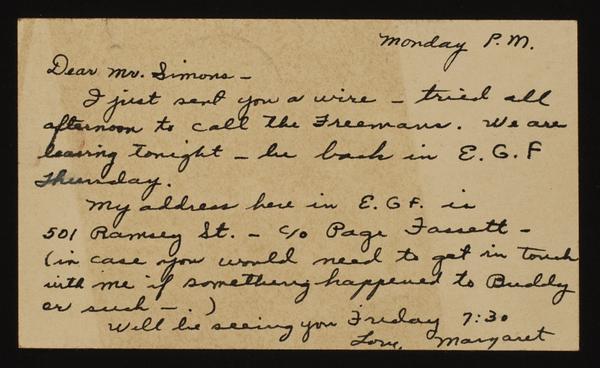 Monday P.M.
Dear Mr. Simons -
I just sent you a wire - tried all
afternoon to call the Freemans. We are
leaving tonight - be back in E. G. F
Thursday.
My address here in E. G F. is
501 Ramsey St. - c/o Page Fassett -
(in case you would need to get in touch
with me if something happened to Buddy
or such - .)
Will be seeing you Friday 7:30
Love, Margaret